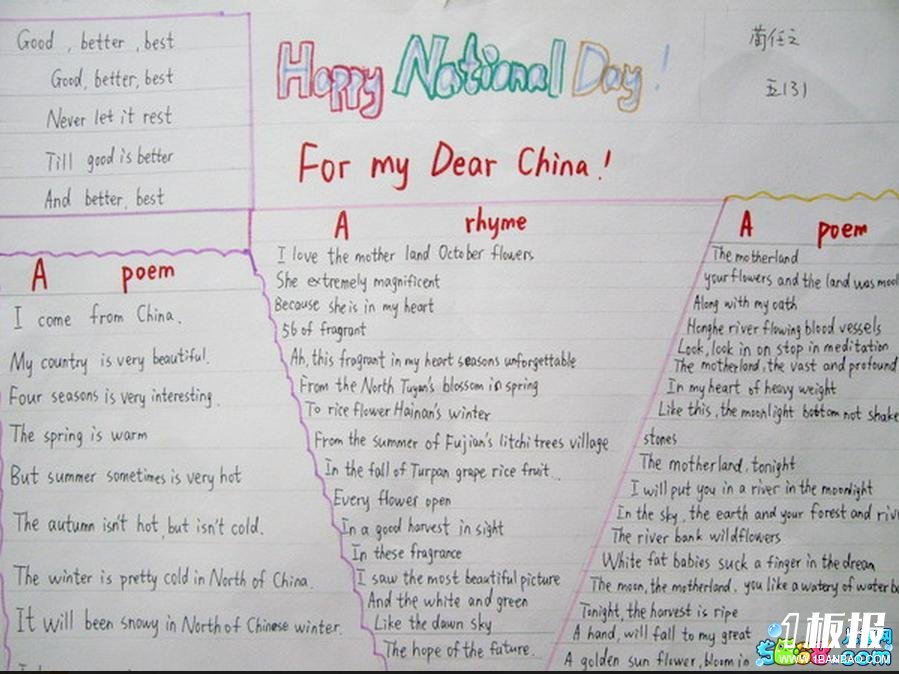 Good , better , best
Good, better, best
Never let it rest
Till good is better
And better, best
Happy National Day !
For my Dear China !
五(3)
A poem
I come from China.
My country is very beautiful.
Four seasons is very interesting.
The spring is warm
But summer sometimes is very hot
The autumn isn't hot, but isn't cold.
The winter is pretty cold in North of China.
It will been snowy in North of Chinese winter.
A rhyme
I love the mother land October flowers
She extremely magnificent
Because she is in my heart
56 of fragrant
Ah, this fragrant in my heart seasons unforgettable
From the North Tuyan's blossom in spring
To rice flower Hainan's winter
From the summer of Fujian's litchi trees village
In the fall of Turpan grape rice fruit
Every flower open
In a good harvest in sight
In these fragrance
I saw the most beautiful picture
And the white and green
Like the dawn sky
The hope of the future.
A poem
The motherland
your flowers and the land was
Along with my oath
Honghe river flowing blood vessels
Look, look in on stop in meditation
The motherland, the vast and profound
In my heart of heavy weight
Like this, the moonlight bottom not shake
stones
The motherland, tonight
I will put you in a river in the moonlight
In the sky, the earth and your forest and
The river bank wildflowers
White fat babies suck a finger in the dream
The moon, the motherland, you like a watery of water
Tonight, the harvest is ripe
A hand, will fall to my great
A golden sun flower, bloom in
1板报
WWW.1BANBAO.COM